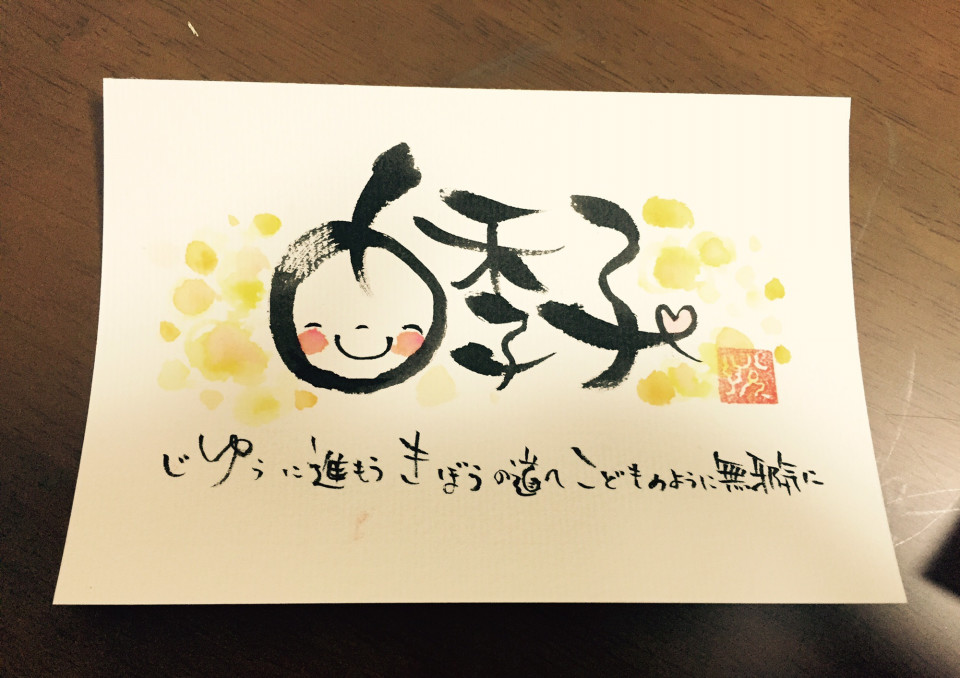 由季子
じゆうに進もう きぼうの道へ こどものように無邪気に